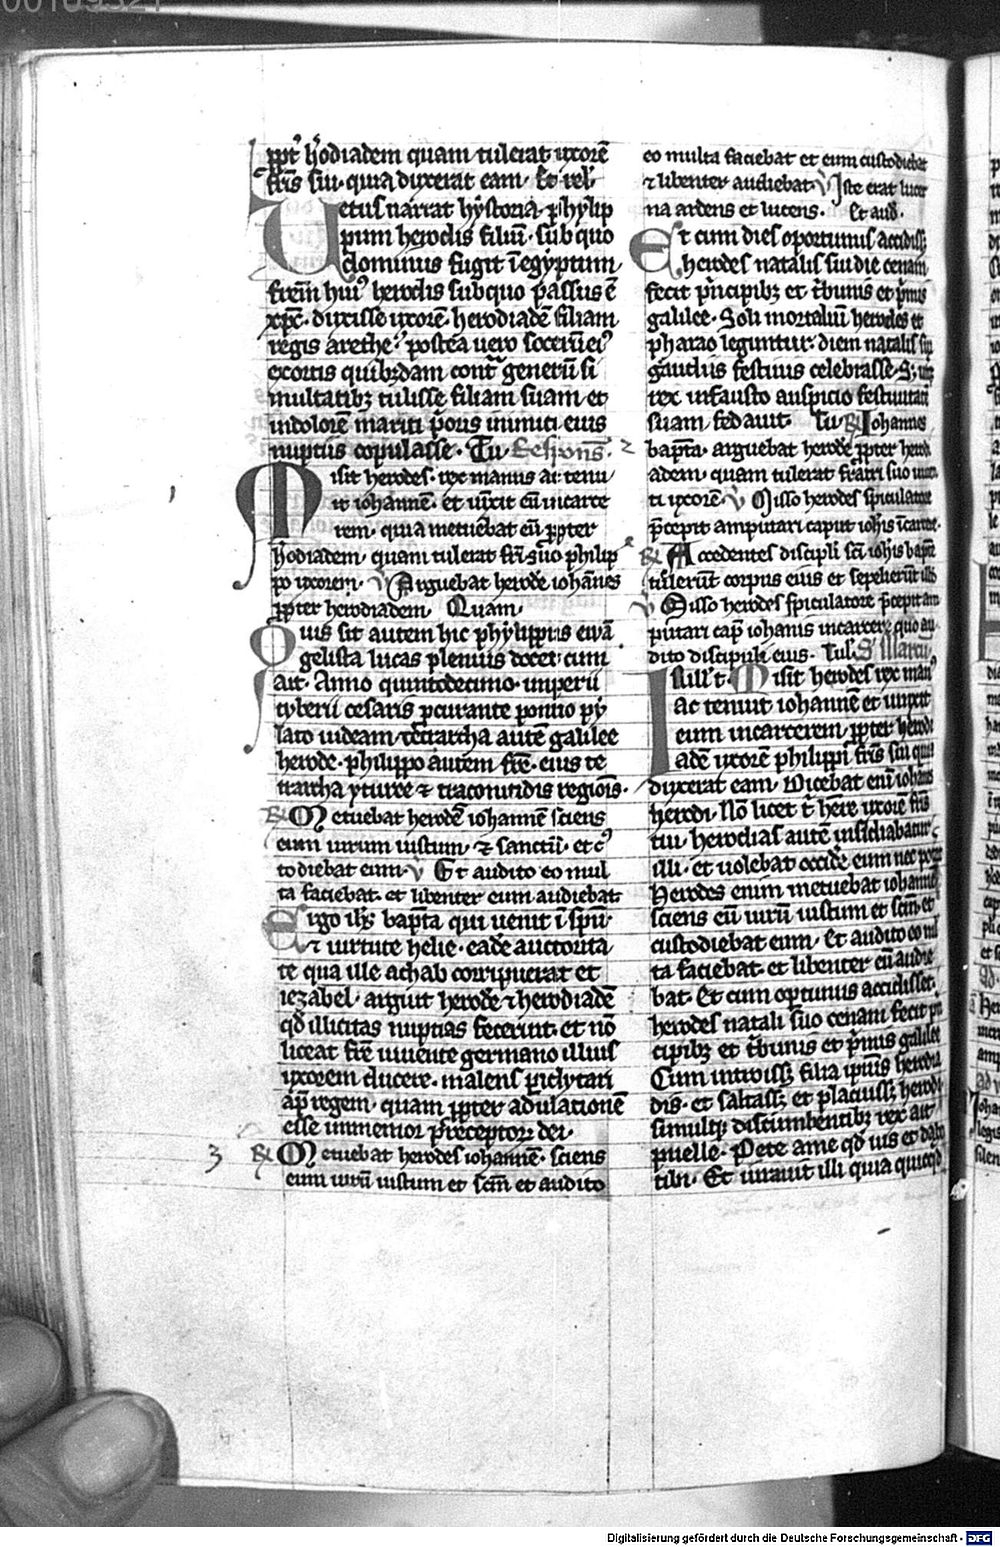 00109321
ꝓpt̓ h̓odiadem quam tulerat uxorē
fr̄is sui· quia dixerat eam· Et rel̓·
Vetus narrat hystoria phylip
pum herodis filiū· sub quo
dominus fugit ī egyptum
fr̄em hui᷒ herodis sub quo passus ē
xp̄c· dixisse uxorē· herodiadē filiam
regis arethe· postea uero socerū ei᷒
exortis quibꝫdam cont̄ generū si
multatibꝫ tulisse filiam suam et
in dolorē mariti p̓oris inimici eius
nuptiis copulasse· Tu Respons̄·
Misit herodes· rex manus ac tenu
it iohannē· et uīxit eū in carce
rem· quia metuebat eū ꝓpter
h̓odiadem· quam tulerat fr̄i suo philip
po uxorem· V Arguebat herodē iohannes
ꝓpter herodiadem Quam·
Quis sit autem hic phylippus euā
gelista lucas plenius docet· cum
ait· Anno quintodecimo· imperii
tyberii cesaris ꝓcurante pontio py
lato iudeam· tetrarcha autē galilee
herode· philippo autem fr̄e· eius te
trarcha yturee ⁊ traconitidis regiōis·
R̷ Metuebat herodē iohannē sciens
eum uirum iustum· ⁊ sanctū· et c᷒
todiebat eum· V Et audito eo mul
ta faciebat· et libenter eum audiebat
Ergo ioh̄s bapt̄a qui uenit ī spū
⁊ uirtute helie· eadē auctorita
te qua ille achab corripuerat et
iezabel· arguit herodē ⁊ herodiadē
qd̓ illicitas nuptias fecerint· et nō
liceat fr̄e uiuente germano illius
uxorem ducere· malens p̓iclitari
ap̄ regem· quam ꝓpter adulationē
esse inmemor p̄ceptoꝝ dei·
3 R̷ Metuebat herodes iohannē· sciens
eum uirū iustum et sc̄m et audito
eo multa faciebat et eum custodiebat
⁊ libenter audiebat V Iste erat lucer
na ardens et lucens· Et aud̄·
Et cum dies oportunus accidissꝫ
herodes natalis sui die cenam
fecit p̓ncipibꝫ et t̓bunis et p̓mis
galilee· Soli mortaliū herodes et
pharao leguntur· diem natalis sui
gaudiis festiuis celebrasse· S;
rex infausto auspicio festiuitatē
suam fedauit· Tu R̷ Iohannes
bapt̄a· arguebat herodē ꝓpter herodi
adem· quam tulerat fratri suo
ti uxorē V Misso herodes spiculatore
p̄cepit amputari caput ioh̄is ī carcere·
R̷ Accedentes discipl̓i sc̄i ioh̄is bapt̄e
tulerūt corpus eius et sepelierūt illud
V Misso herodes spiculatore p̄cepit am
putari cap̄ iohanis in carcere quo au
dito discipuli eius· Tul̓· S̄ Marcū
I n illo t̄· Misit herodes rex man᷒
ac tenuit iohannē et uinxit
eum in carcerem· ꝓpter herodi
adē uxorē philippi fr̄is sui quia
dixerat eam· Dicebat enī iohanes
herodi· Nō licet t̓ h̄ere uxorē fr̄is
tui· herodias autē insidiabatur
illi· et uolebat occid̓e eum nec poterat
Herodes enim metuebat iohannē
sciens eū uirū iustum et sc̄m et
custodiebat eum· Et audito eo mul
ta faciebat· et libenter eū audie
bat· Et cum op̄tunus accidisset·
herodes natali suo cenam fecit p̓n
cipibꝫ et t̓bunis et p̓mis galilee
Cum introissꝫ filia ipius herodia
dis· et saltassꝫ et placuissꝫ herodi
simulqꝫ discumbentibꝫ rex ait
puelle· Pete a me qd̓ uis et dabo
tibi· Et iurauit illi quia quicqd̓
Digitalisierung gefördert durch die Deutsche Forschungsgemeinschaft - DFG